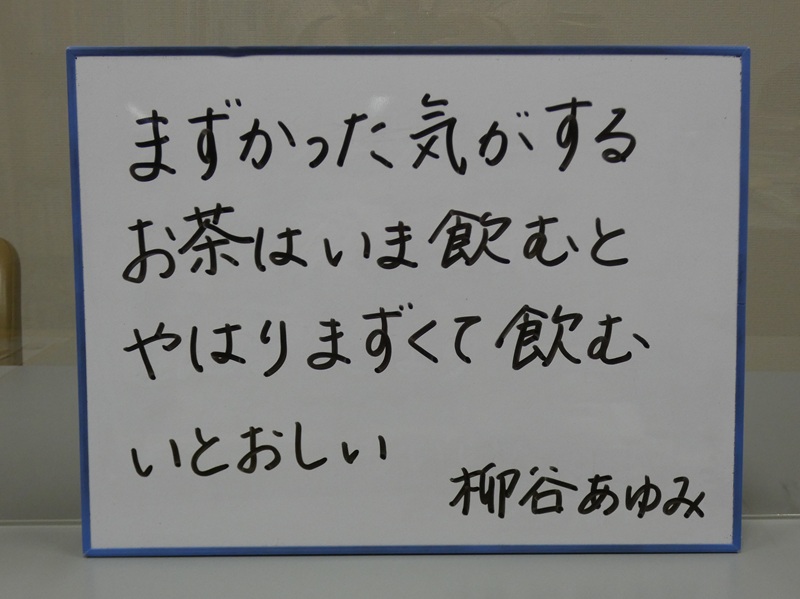 まずかった気がする
お茶はいま飲むと
やはりまずくて飲む
いとおしい
柳谷あゆみ